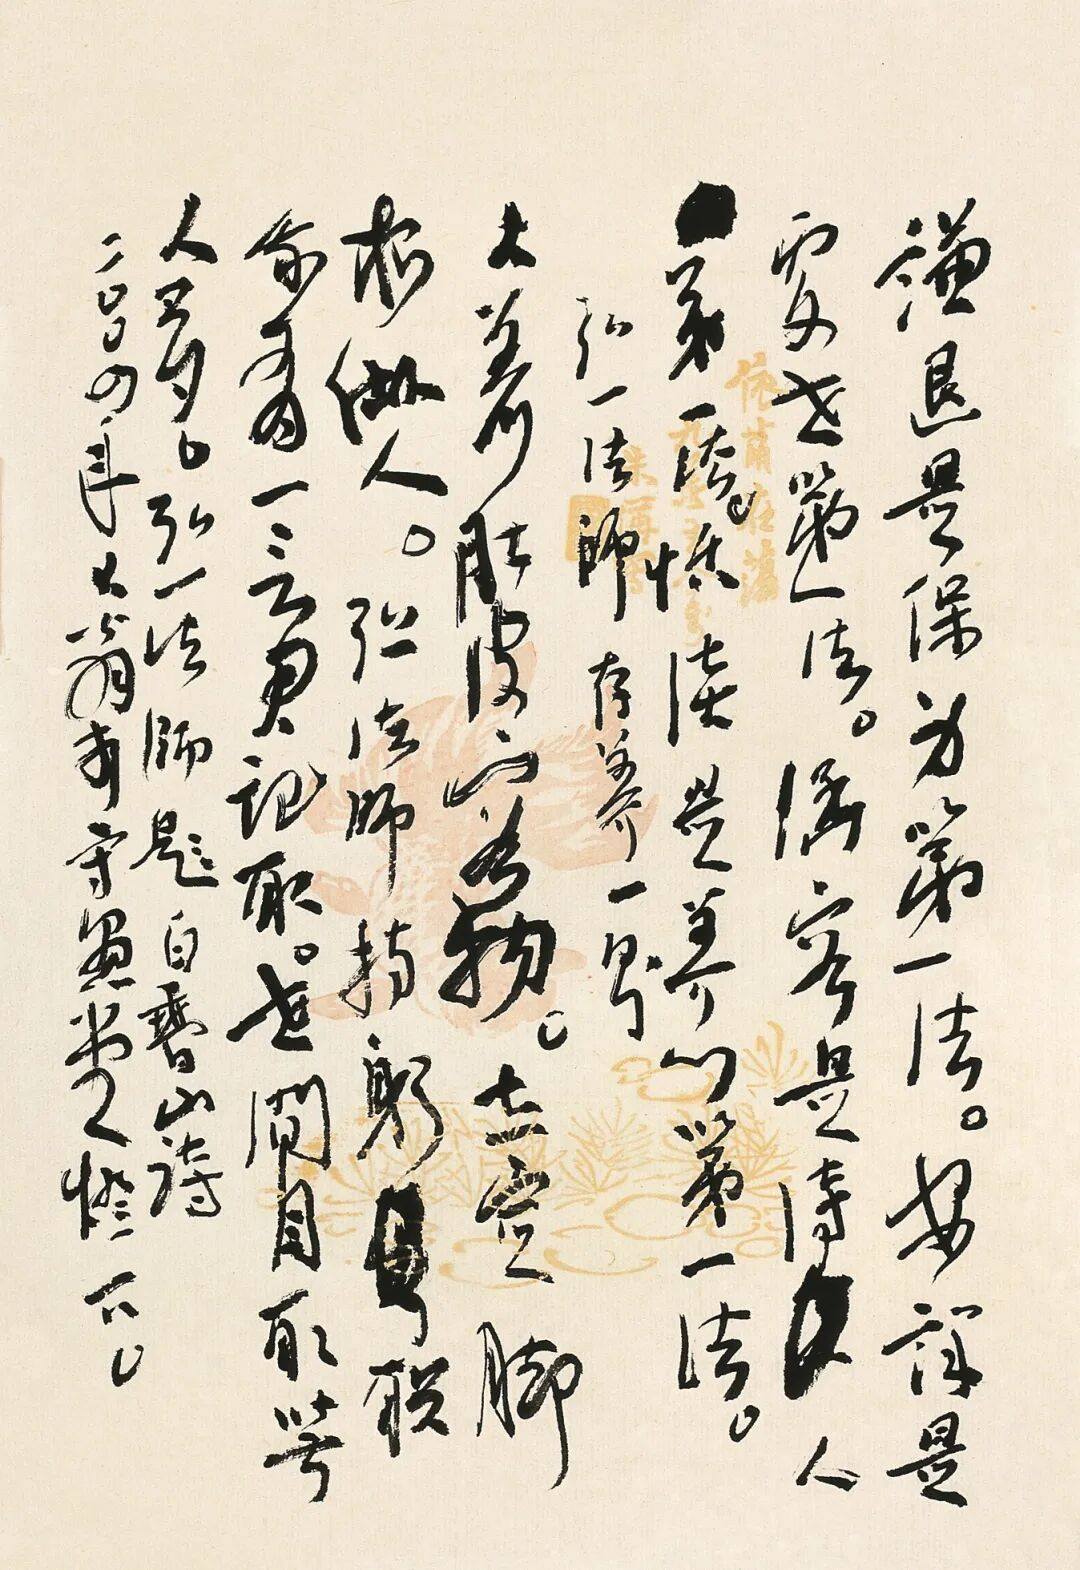 謙退是保身第一法。安詳是
處世第一法。涵容是待人
第一法。恬淡是養心第一法。
弘一法師 存養一則
大着肚皮容物。立定脚
根做人。弘一法師持躬聯
余有一言君記取。世間自取苦
人多。弘一法師題白香山詩
二〇〇四年大翁書守愚堂燈下。